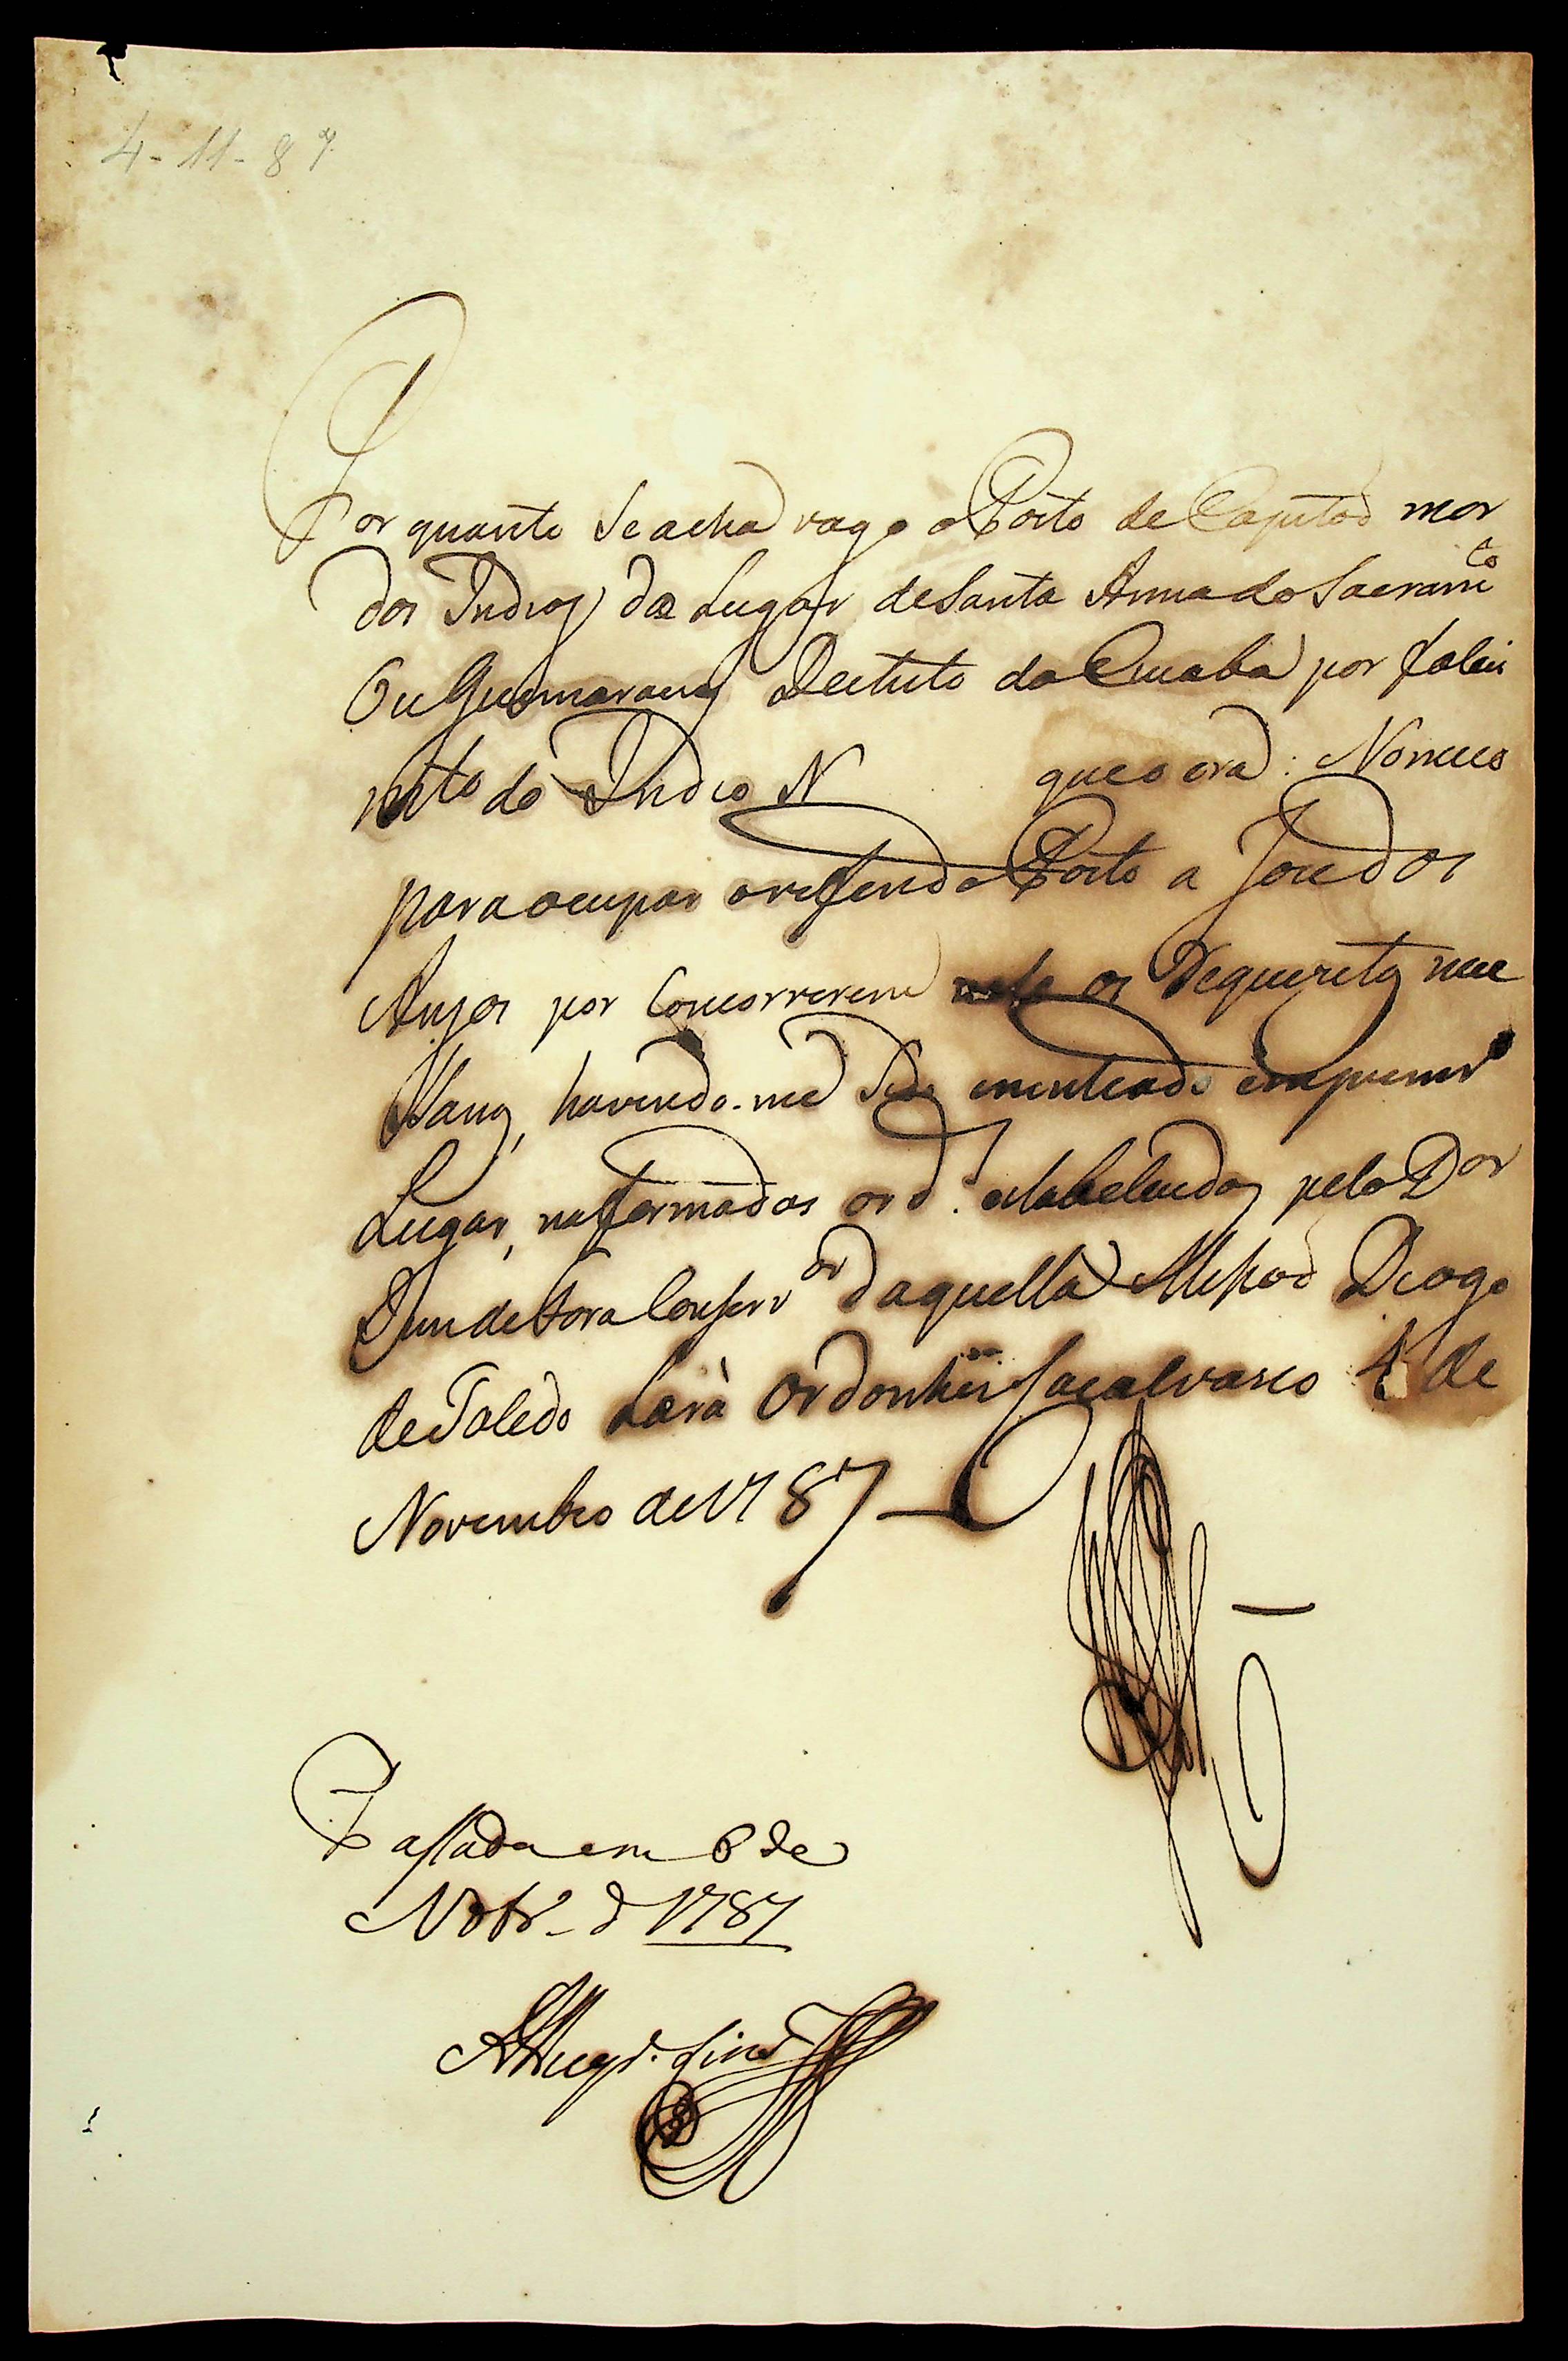 4-11-87
Por quanto Se acha vago o Posto de Capitaõ mor
dos Indios do Lugar de Santa Anna do Sacram.to
Ou Guimaraens Destricto do Cuiaba por faleci
mto do Indio N que o era: Nomeio
para ocupar o referido Posto a Joze dos
Anjos por concorrerem nele os Requezitos nece
sarios, havendo-me Sido emviado em primr.o
Lugar, na forma das ord.s estabelecidas pelo D.or
Juiz de Fora Conserv.or daquella Missaõ Diogo
de Toledo Lara Ordonhes Casalvasco 4 de
Novembro de 1787
Passada em 6 de
Novbr.o d 1787